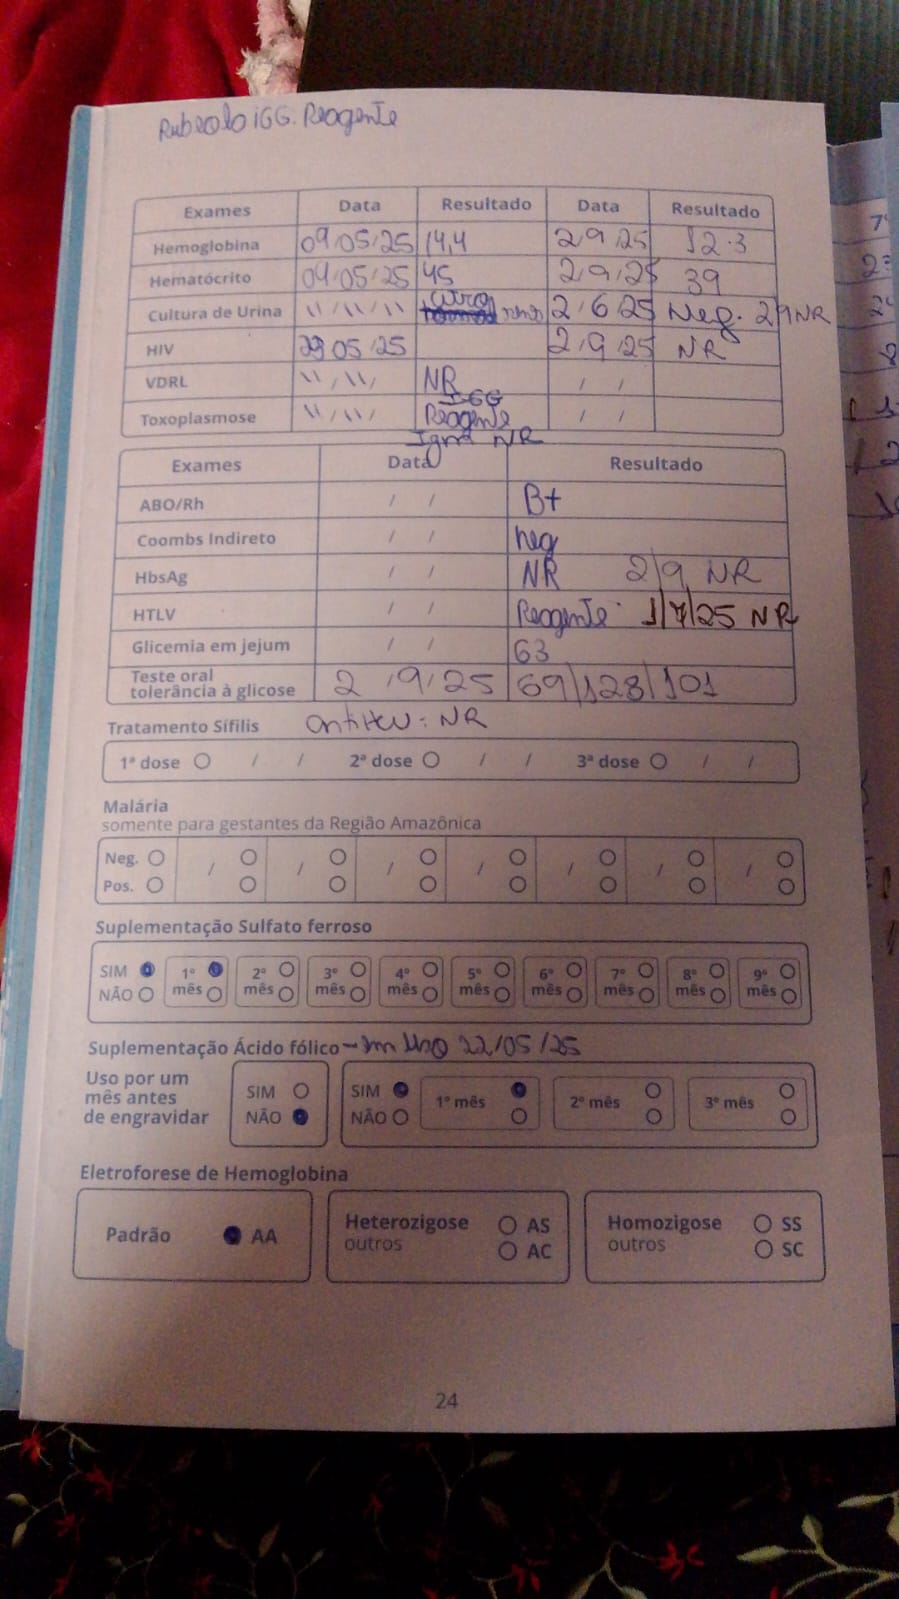 Rubeola IGG. Reagente
Exames Data Resultado Data Resultado
Hemoglobina 09/05/25 14,4 2/9/25 12.3
Hematócrito 09/05/25 45 2/9/25 39
Cultura de Urina 11/11/11 2/6/25 Neg. 2/9 NR
HIV 29/05/25 2/9/25 NR
VDRL 11/11/ NR / /
Toxoplasmose 11/11/ IGG Reagente / /
Igm N/R
Exames Data Resultado
ABO/Rh / / B+
Coombs Indireto / / neg
HbsAg / / NR 2/9 NR
HTLV / / Reagente 1/7/25 NR
Glicemia em jejum / / 63
Teste oral
tolerância à glicose 2/9/25 69/128/101
Tratamento Sífilis antiHCV: NR
1ª dose / / 2ª dose / / 3ª dose / /
Malária
somente para gestantes da Região Amazônica
Neg. / / / / / / /
Pos.
Suplementação Sulfato ferroso
SIM 1º 2º 3º 4º 5º 6º 7º 8º 9º
NÃO mês mês mês mês mês mês mês mês mês
Suplementação Ácido fólico - Em uso 22/05/25
Uso por um
mês antes
de engravidar
SIM
NÃO
SIM
NÃO
1º mês 2º mês 3º mês
Eletroforese de Hemoglobina
Padrão AA
Heterozigose AS
outros AC
Homozigose SS
outros SC
24